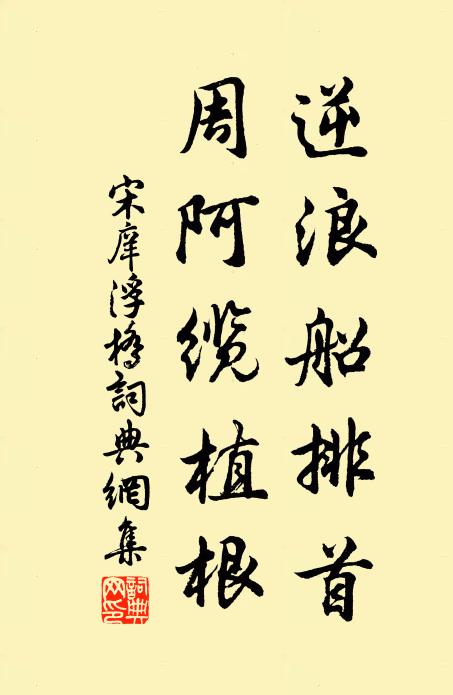 逆浪船排首
周阿缆植根
宋庠浮橋詞典網集
詞典网印